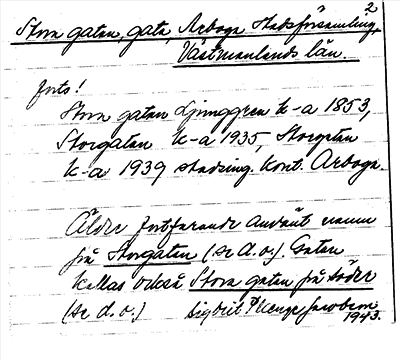 2
Stora gatan, gata, Arboga Stadsförsamling,
Västmanlands län.
forts!
Stora gatan Ljunggren k-a 1853,
Storgatan k-a 1935, Storgatan
k-a 1939 stadsing. kont. Arboga.
Äldre fortfarande använt namn
på Storgatan (se d. o.). Gatan
kallas också Stora gatan på söder
(se d. o.) Sigbrit Jacobson
1943.